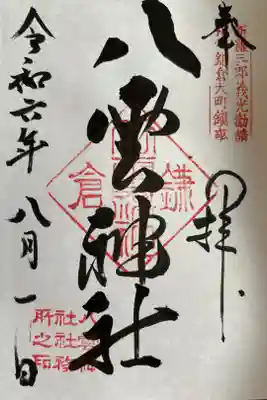 奉
拝
新羅三郎義光勧請
鎌倉大町鎮座
八雲神社
鎌倉
八雲神
社社務
所之印
令和六年八月一日